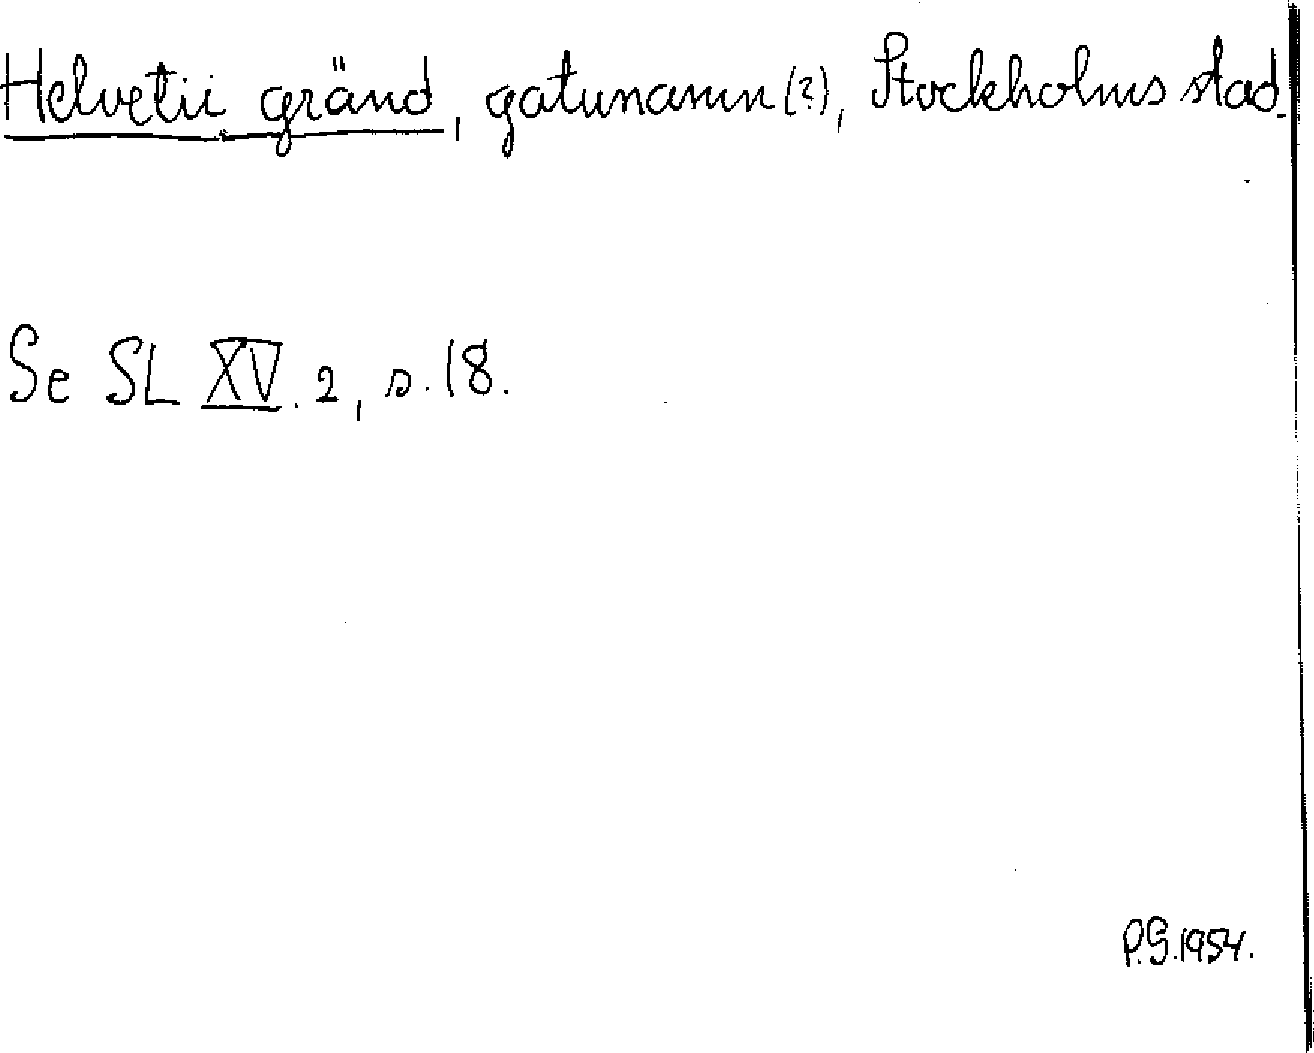 Helvetii gränd, gatunamn (?), Stockholms stad.
Se SL XV. 2, s. 18.
P.G. 1954.